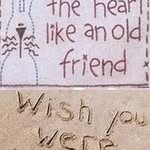 the heart
like an old
friend
Wish you
were